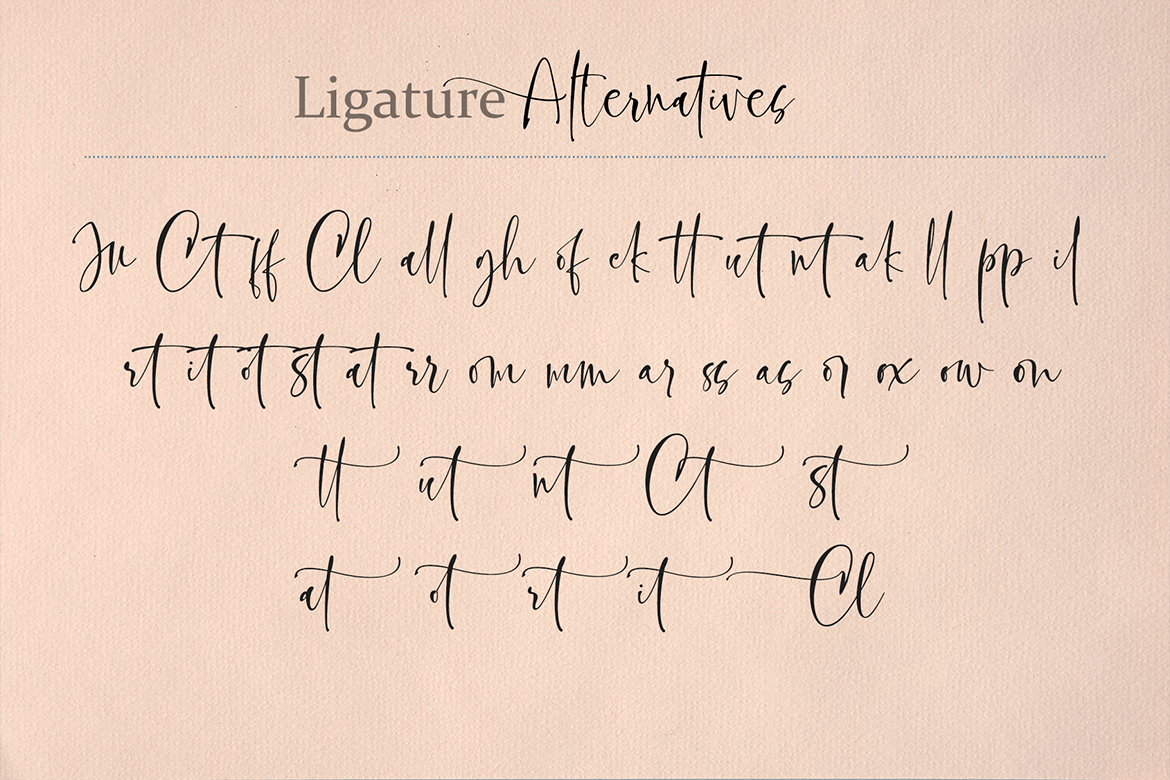 Ligature Alternatives
Ju Ct ff Cl all gh of ck tt ut nt ak ll pp il
rt it ot st at rr om mm ar ss as or ox ow on
tt ut nt Ct st
at ot rt it Cl